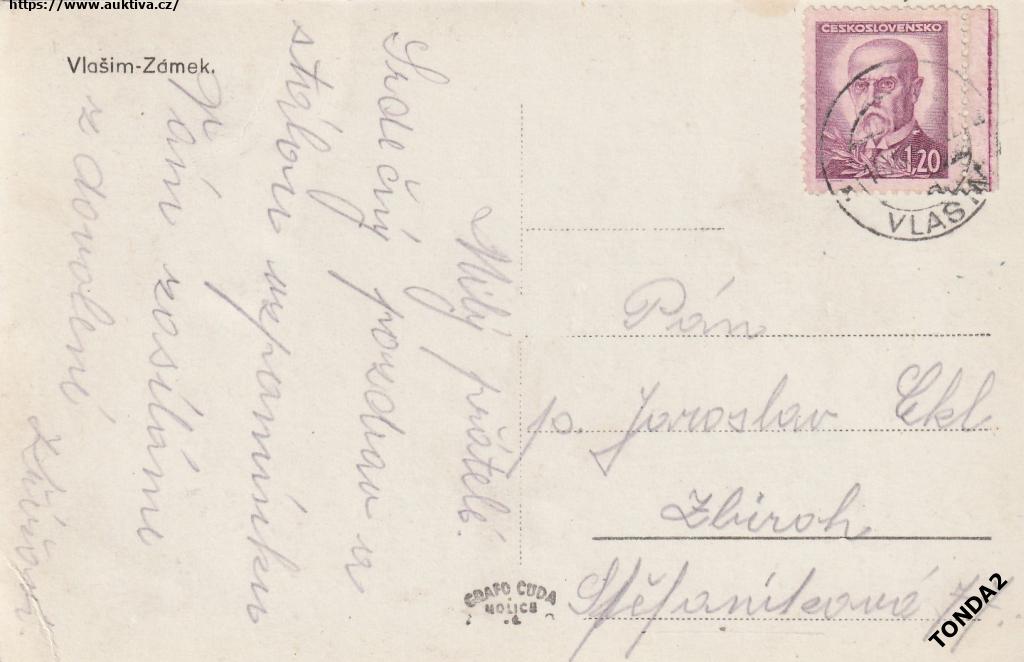 https://www.auktiva.cz/
Vlašim-Zámek.
ČESKOSLOVENSKO
1,20
VLAŠIM
Milý přátelé.
Srdečný pozdrav a
stálou vzpomínku
Vám zasíláme
z dovolené
Pán
p. Jaroslav Ekl
Zbiroh
Štefániková
GRAFO ČUDA
HOLICE
TONDA2